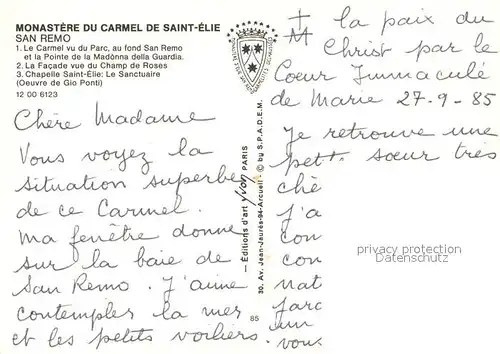 MONASTÈRE DU CARMEL DE SAINT-ÉLIE
SAN REMO
1. Le Carmel vu du Parc, au fond San Remo
et la Pointe de la Madonna della Guardia.
2. La Façade vue du Champ de Roses
3. Chapelle Saint-Élie: Le Sanctuaire
(Oeuvre de Gio Ponti)
12 00 6123
Chère Madame
Vous voyez la
situation superbe
de ce Carmel.
Ma fenêtre donne
sur la baie de
San Remo. J'aime
contempler la mer
et les petits voiliers.
— Éditions d'art yvon PARIS
30, Av. Jean-Jaurès-94-Arcueil © by S.P.A.D.E.M.
85
la paix du
M
Christ par le
Coeur Immaculé
de Marie 27-9-85
Je retrouve une
petit sœur très
chè
j'a
con
con
nat
parc
um
vous
privacy protection
Datenschutz